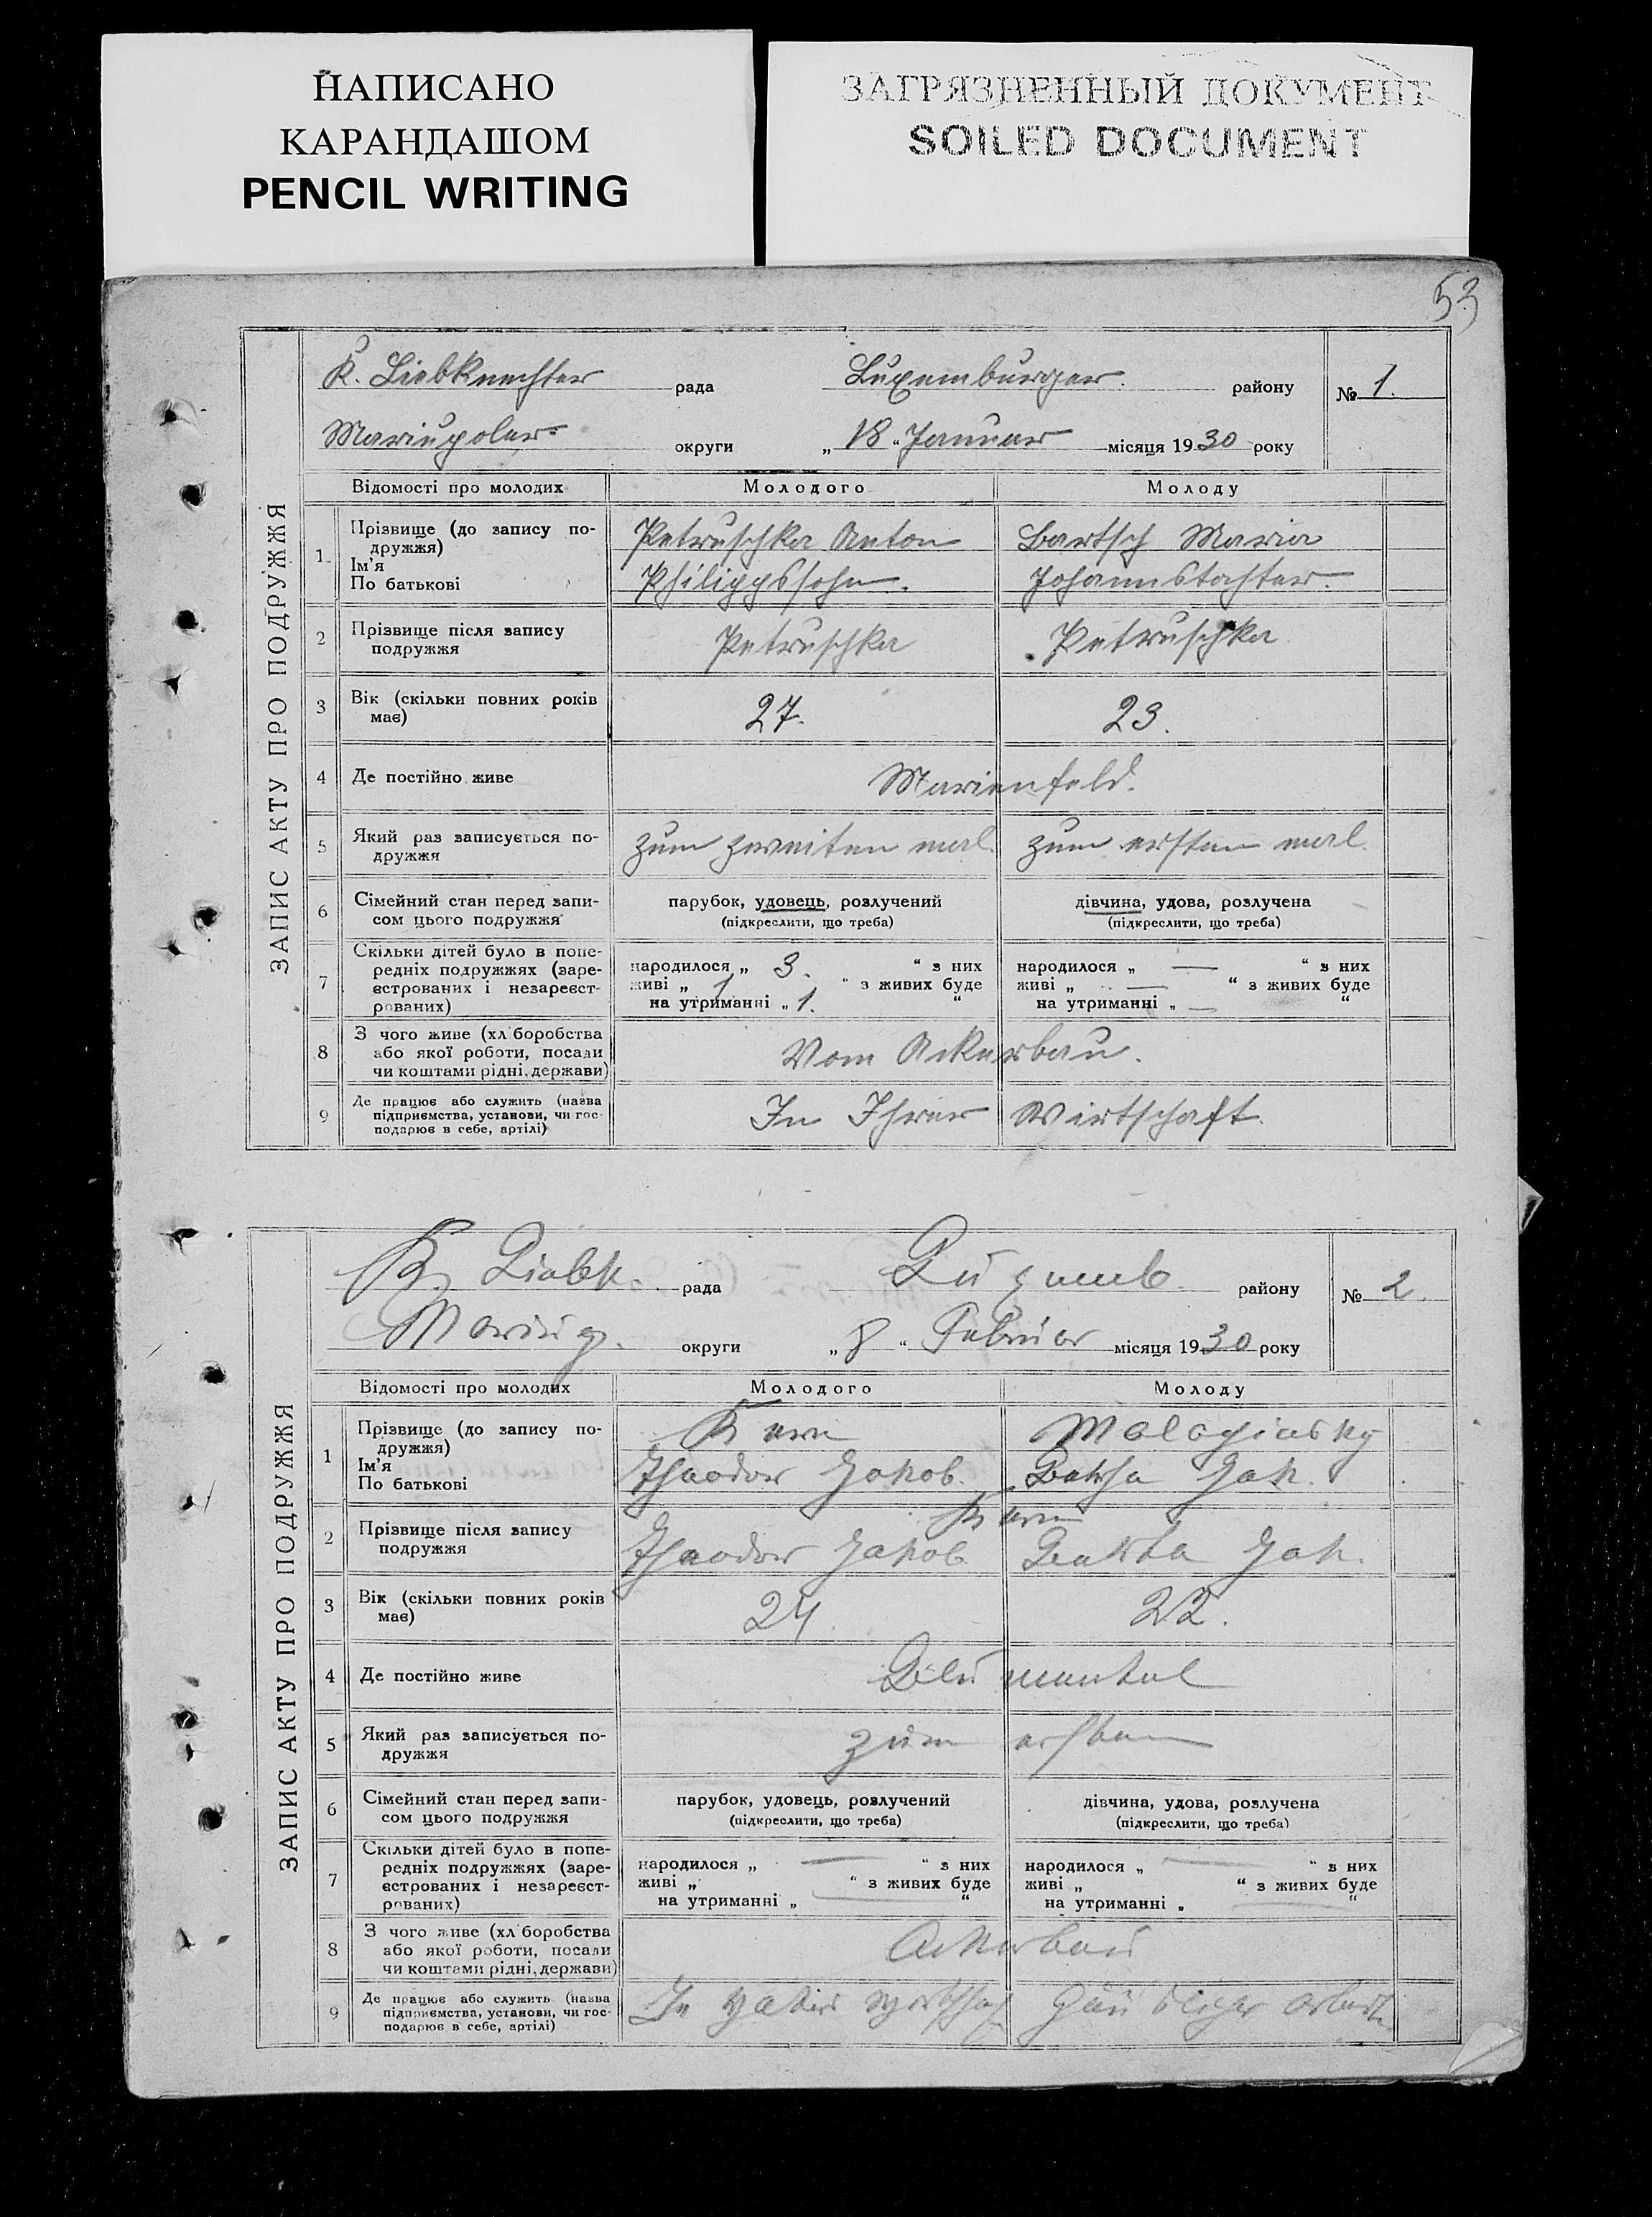 НАПИСАНО
КАРАНДАШОМ
PENCIL WRITING
ЗАГРЯЗНЕННЫЙ ДОКУМЕНТ
SOILED DOCUMENT
53
ЗАПИС АКТУ ПРО ПОДРУЖЖЯ
K. Liebknechter рада Luxemburger району № 1.
Mariupoler округи „ 18 “ Januar місяця 1930 року
Відомості про молодих Молодого Молоду
1 Прізвище (до запису подружжя)
Ім'я
По батькові
Petruschka Anton
Philippssohn.
Bartsch Maria
Johannstochter.
2 Прізвище після запису
подружжя
Petruschka Petruschka
3 Вік (скільки повних років
має)
27. 23.
4 Де постійно живе Marienfeld.
5 Який раз записується по-
дружжя
zum zweiten mal. zum ersten mal.
6 Сімейний стан перед запи-
сом цього подружжя
парубок, удовець, розлучений
(підкреслити, що треба)
дівчина, удова, розлучена
(підкреслити, що треба)
7 Скільки дітей було в попе-
редніх подружжях (заре-
єстрованих і незареєст-
рованих)
народилося „ 3. “ з них
живі „ 1 “ з живих буде
на утриманні „ 1. “
народилося „ — “ з них
живі „ — “ з живих буде
на утриманні „ — “
8 З чого живе (хліборобства
або якої роботи, посади
чи коштами рідні, держави)
Vom Ackerbau.
9 Де працює або служить (назва
підприємства, установи, чи гос-
подарює в себе, артілі)
In Ihrer Wirtschaft.
ЗАПИС АКТУ ПРО ПОДРУЖЖЯ
K. Liebk. рада Luxemb. району № 2.
Mariup. округи „ 8 “ Februar місяця 1930 року
Відомості про молодих Молодого Молоду
1 Прізвище (до запису по-
дружжя)
Ім'я
По батькові
Kern
Theodor Jakob.
Berta Jak.
2 Прізвище після запису
подружжя
Kern
Theodor Jakob Berta Jak.
3 Вік (скільки повних років
має)
24. 22.
4 Де постійно живе Blumental
5 Який раз записується по-
дружжя
zum ersten
6 Сімейний стан перед запи-
сом цього подружжя
парубок, удовець, розлучений
(підкреслити, що треба)
дівчина, удова, розлучена
(підкреслити, що треба)
7 Скільки дітей було в попе-
редніх подружжях (заре-
єстрованих і незареєст-
рованих)
народилося „ — “ з них
живі „ “ з живих буде
на утриманні „ — “
народилося „ — “ з них
живі „ “ з живих буде
на утриманні „ — “
8 З чого живе (хліборобства
або якої роботи, посади
чи коштами рідні, держави)
Ackerbau
9 Де працює або служить (назва
підприємства, установи, чи гос-
подарює в себе, артілі)
In